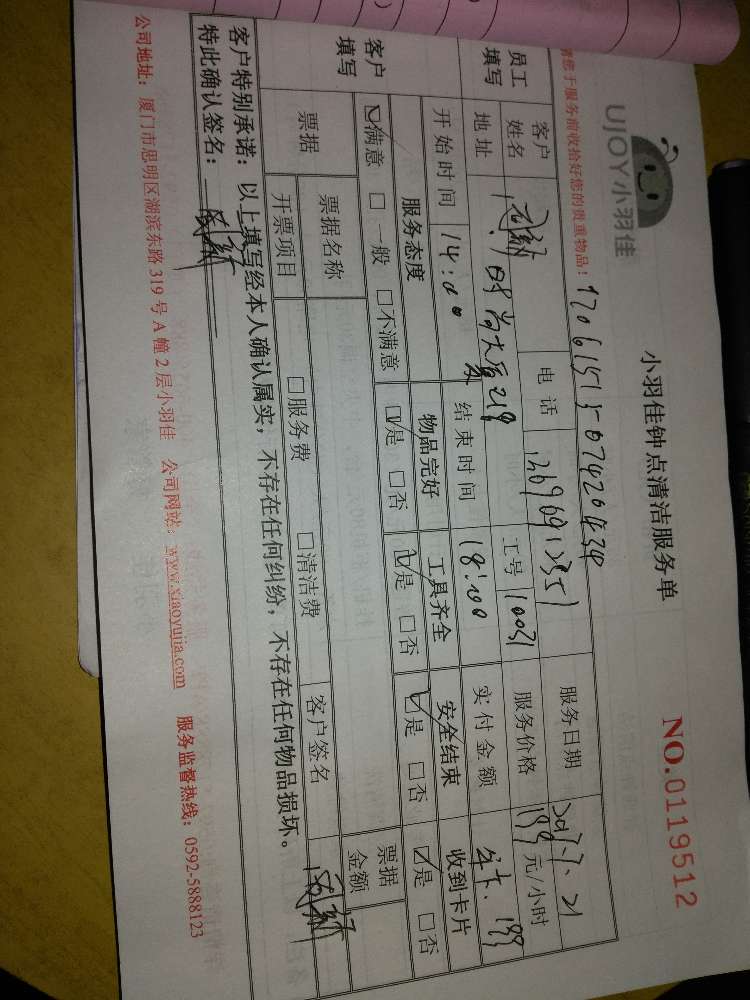 UJOY小羽佳
小羽佳钟点清洁服务单
NO.0119512
请您于服务前收拾好您的贵重物品！
员工填写
客户姓名
电话
服务日期
地址
时尚大厦219
工号 10031
服务价格 199 元/小时
开始时间 14:00
结束时间 18:00
实付金额 年卡、199
客户填写
服务态度 物品完好 工具齐全 安全结束 收到卡片
☑满意 □一般 □不满意 ☑是 □否 ☑是 □否 ☑是 □否 ☑是 □否
票据
票据名称
□服务费 □清洁费
客户签名
票据金额
开票项目
客户特别承诺：以上填写经本人确认属实，不存在任何纠纷，不存在任何物品损坏。
特此确认签名：
公司地址：厦门市思明区湖滨东路 319 号 A 幢 2 层小羽佳 公司网站：www.xiaoyujia.com 服务监督热线：0592-5888123